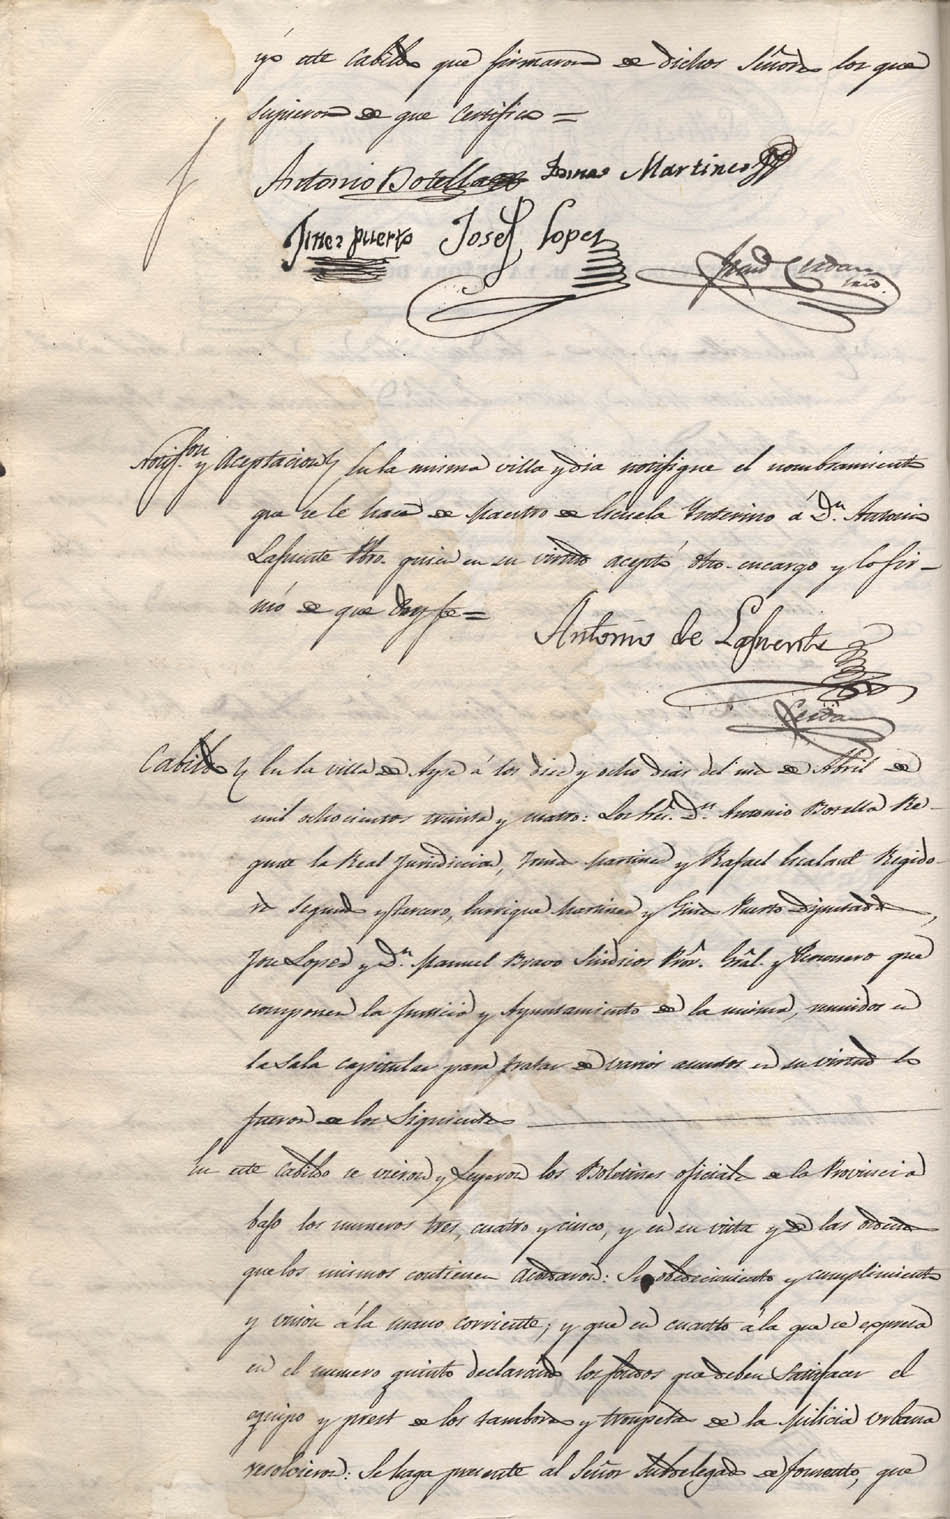 yó este Cabildo que firmaron de dichos Señores los que
supieron de que Certifico =
Antonio Botella Tomas Martines
Jines puerto Josef Lopez Cerdan
Srio.
Notifon. y Aceptacion En la misma villa y dia notifique el nombramiento
que se le hace de Maestro de Escuela Ynterino á Dn. Antonio
Lafuente Pbro. quien en su virtud aceptó dho. encargo y lo fir-
mó de que doy fe =
Antonio de Lafuente
Cerdan
Cabildo En la villa de Aspe á los diez y ocho dias del mes de Abril de
mil ochocientos treinta y cuatro: Los Sres. Dn. Antonio Botella Re-
gente la Real Jurisdiccion, Tomas Martinez y Rafael Escalant Regido-
res segundo y tercero, Enrrique Martinez y Gines Puerto Diputados,
Jose Lopez y Dn. Manuel Bravo Sindicos Pror. Gral. y Personero que
componen la Justicia y Ayuntamiento de la misma, reunidos en
la Sala capitular para tratar de varios asuntos en su virtud lo
fueron de los Siguientes
En este Cabildo se vieron y Leyeron los Boletines oficiales de la Provincia
bajo los numeros tres, cuatro y cinco, y en su vista y de las ordenes
que los mismos contienen Acordaron: Su obedecimiento y cumplimiento
y union á la mano corriente; y que en cuanto á la que se expresa
en el numero quinto declarando los fondos que deben Satisfacer el
equipo y prest de los tambores y trompetas de la Milicia Urbana
resolvieron: Se haga presente al Señor Subdelegado de fomento, que